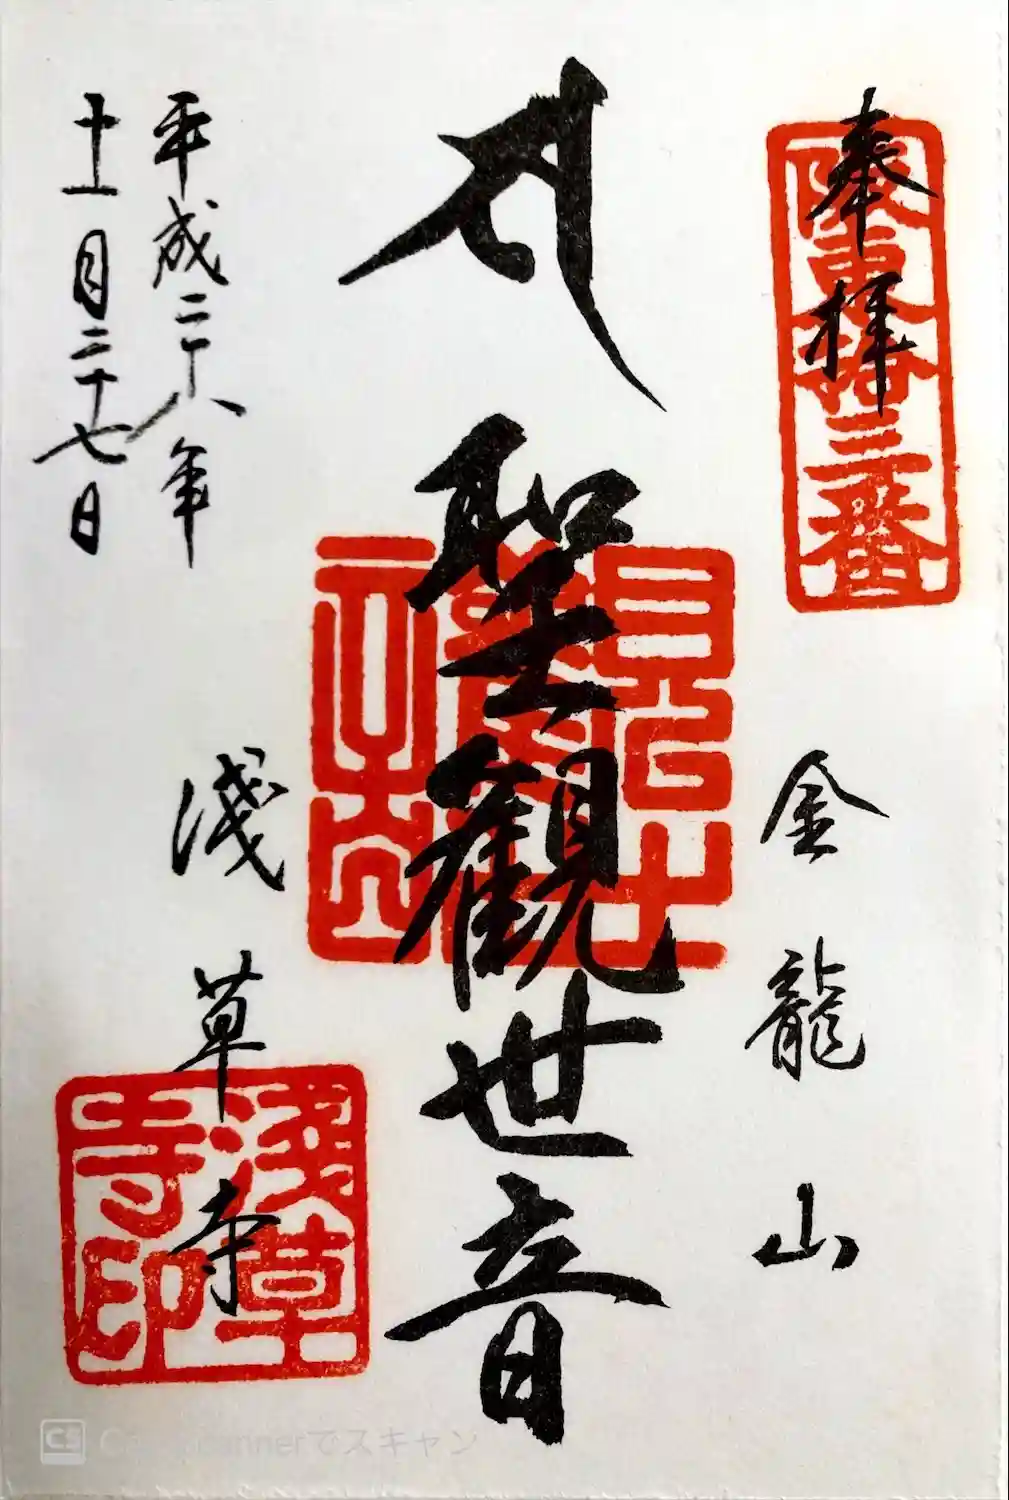 奉拝
阪東拾三番
金龍山
聖観世音
淺草寺
淺草寺印
平成二十八年
十一月二十七日
CS CamScannerでスキャン